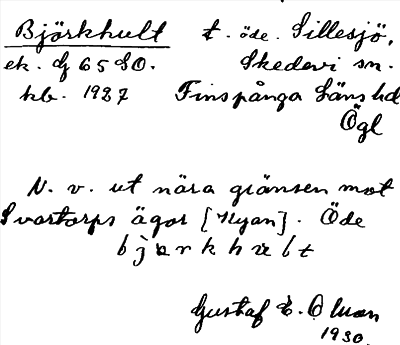 Björkhult t. öde. Sillesjö,
ek. G 65 SO. Skedevi sn.
kb. 1927 Finspånga Läns hd
Ögl
N. v. ut nära gränsen mot
Svartorps ägor [Nyan]. Öde
bjərkhult
Gustaf E. Olson
1930.